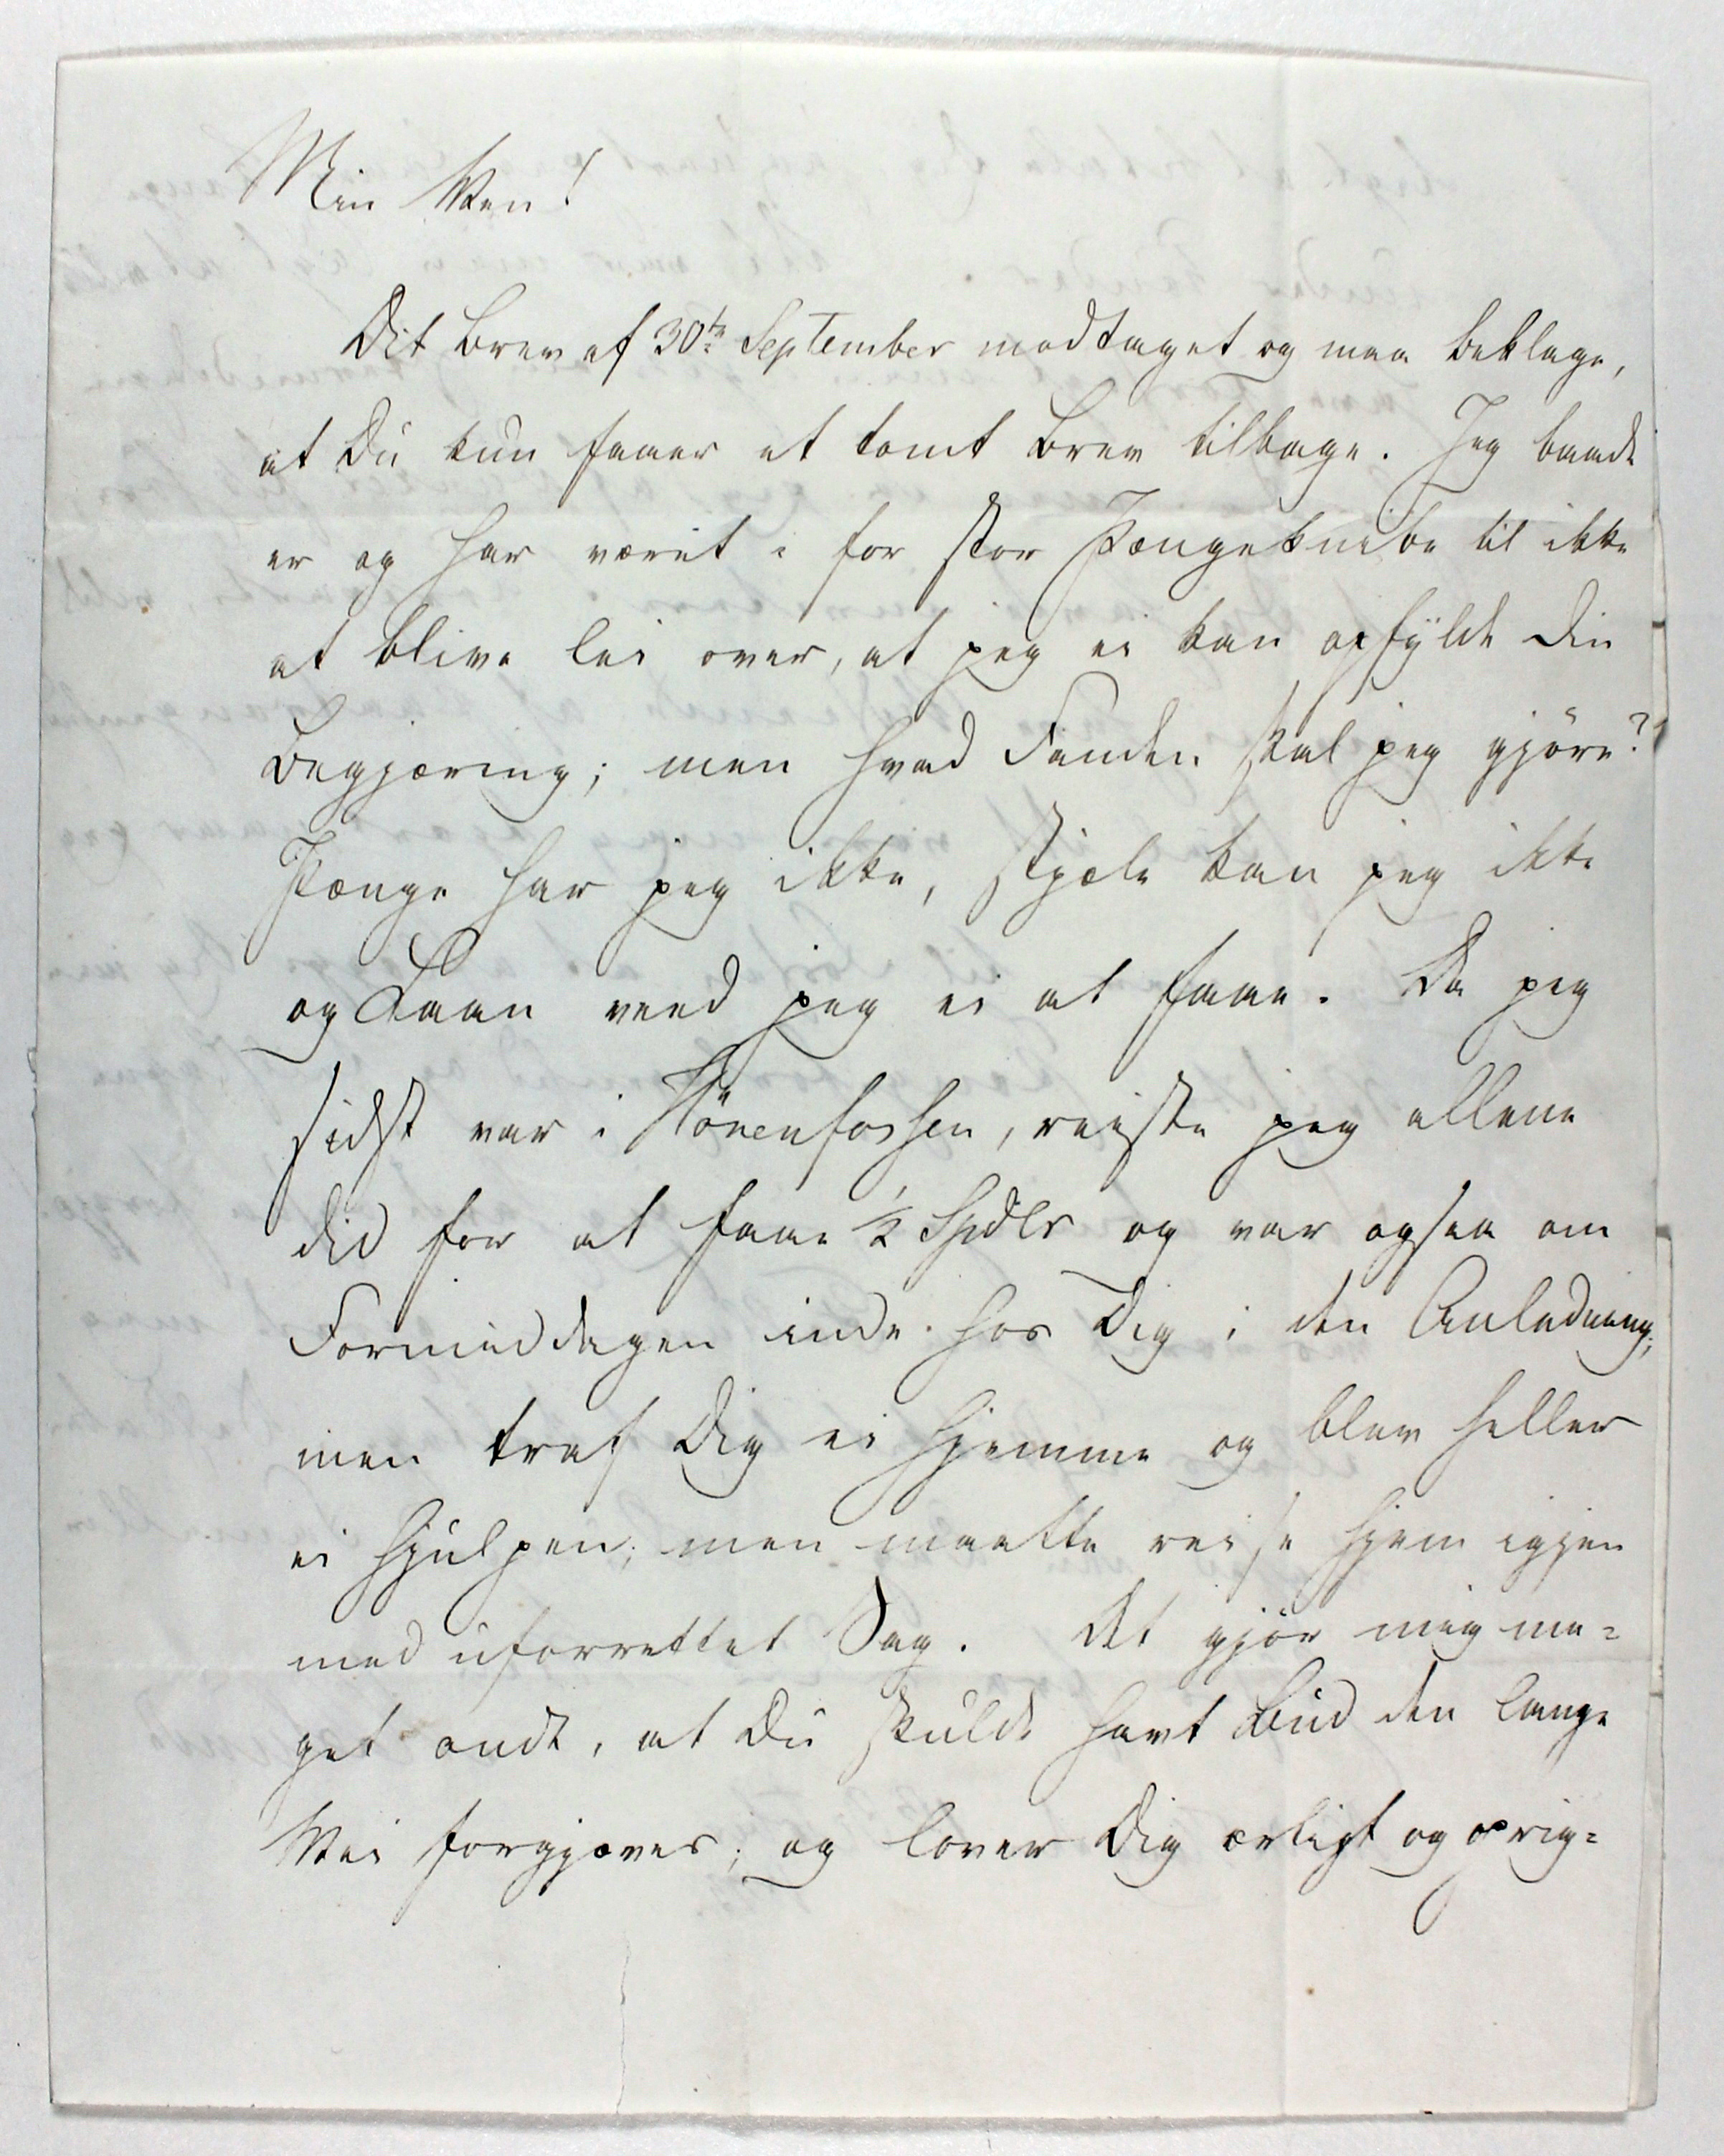 Min Ven!
Dit Brev af 30te September modtaget og maa beklage,
at Du kun faaer et tomt Brev tilbage. Jeg baade
er og har været i for stor Pængeknibe til ikke
at blive lei over, at jeg ei kan opfylde Din
Begjæring; men hvad Fanden skal jeg gjöre?
Pænge har jeg ikke, stjæle kan jeg ikke
og Laan veed jeg ei at faae. Da jeg
sidst var i Hönenfossen, reiste jeg allene
did for at faae ½ Spdlr og var ogsaa om
Formiddagen inde hos Dig i den Anledning,
men traf Dig ei hjemme og blev heller
ei hjulpen; men maatte reise hjem igjen
med uforrettet Sag. Det gjör mig me=
get ondt, at Du skulde havt Bud den lange
Vei forgjæves; og lover Dig ærligt og oprig=